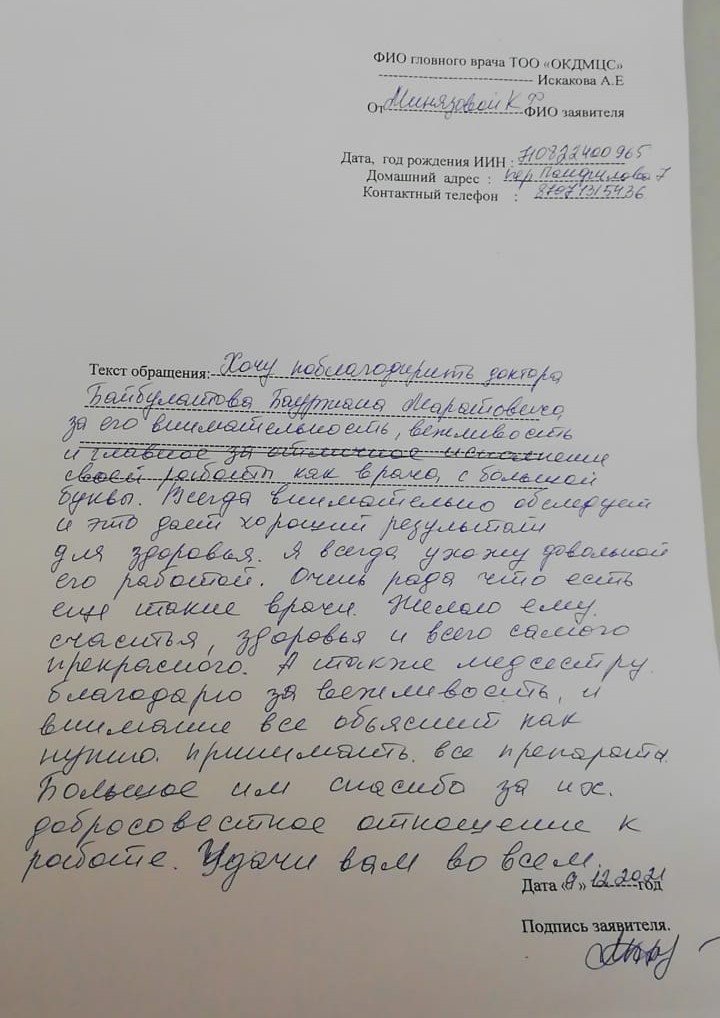 ФИО гловного врача ТОО «ОКДМЦС»
Искакова А.Е
От Минязовой К Ф ФИО заявителя
Дата, год рождения ИИН : 710822400965
Домашний адрес : пер Панфилова 7
Контактный телефон : 87071315436
Текст обращения: Хочу поблагодарить доктора
Байбулатова Бауржана Маратовича
за его внимательность, вежливость
и главное за отличное исполнение
своей работы как врача, с большой
буквы. Всегда внимательно обследует
и это дает хороший результат
для здоровья. Я всегда ухожу довольной
его работой. Очень рада что есть
еще такие врачи. Желаю ему
счастья, здоровья и всего самого
прекрасного. А также медсестру
благодарю за вежливость, и
внимание все объяснит как
нужно принимать все препараты.
Большое им спасибо за их
добросовестное отношение к
работе. Удачи вам во всем.
Дата «9» 12.2021 год
Подпись заявителя.